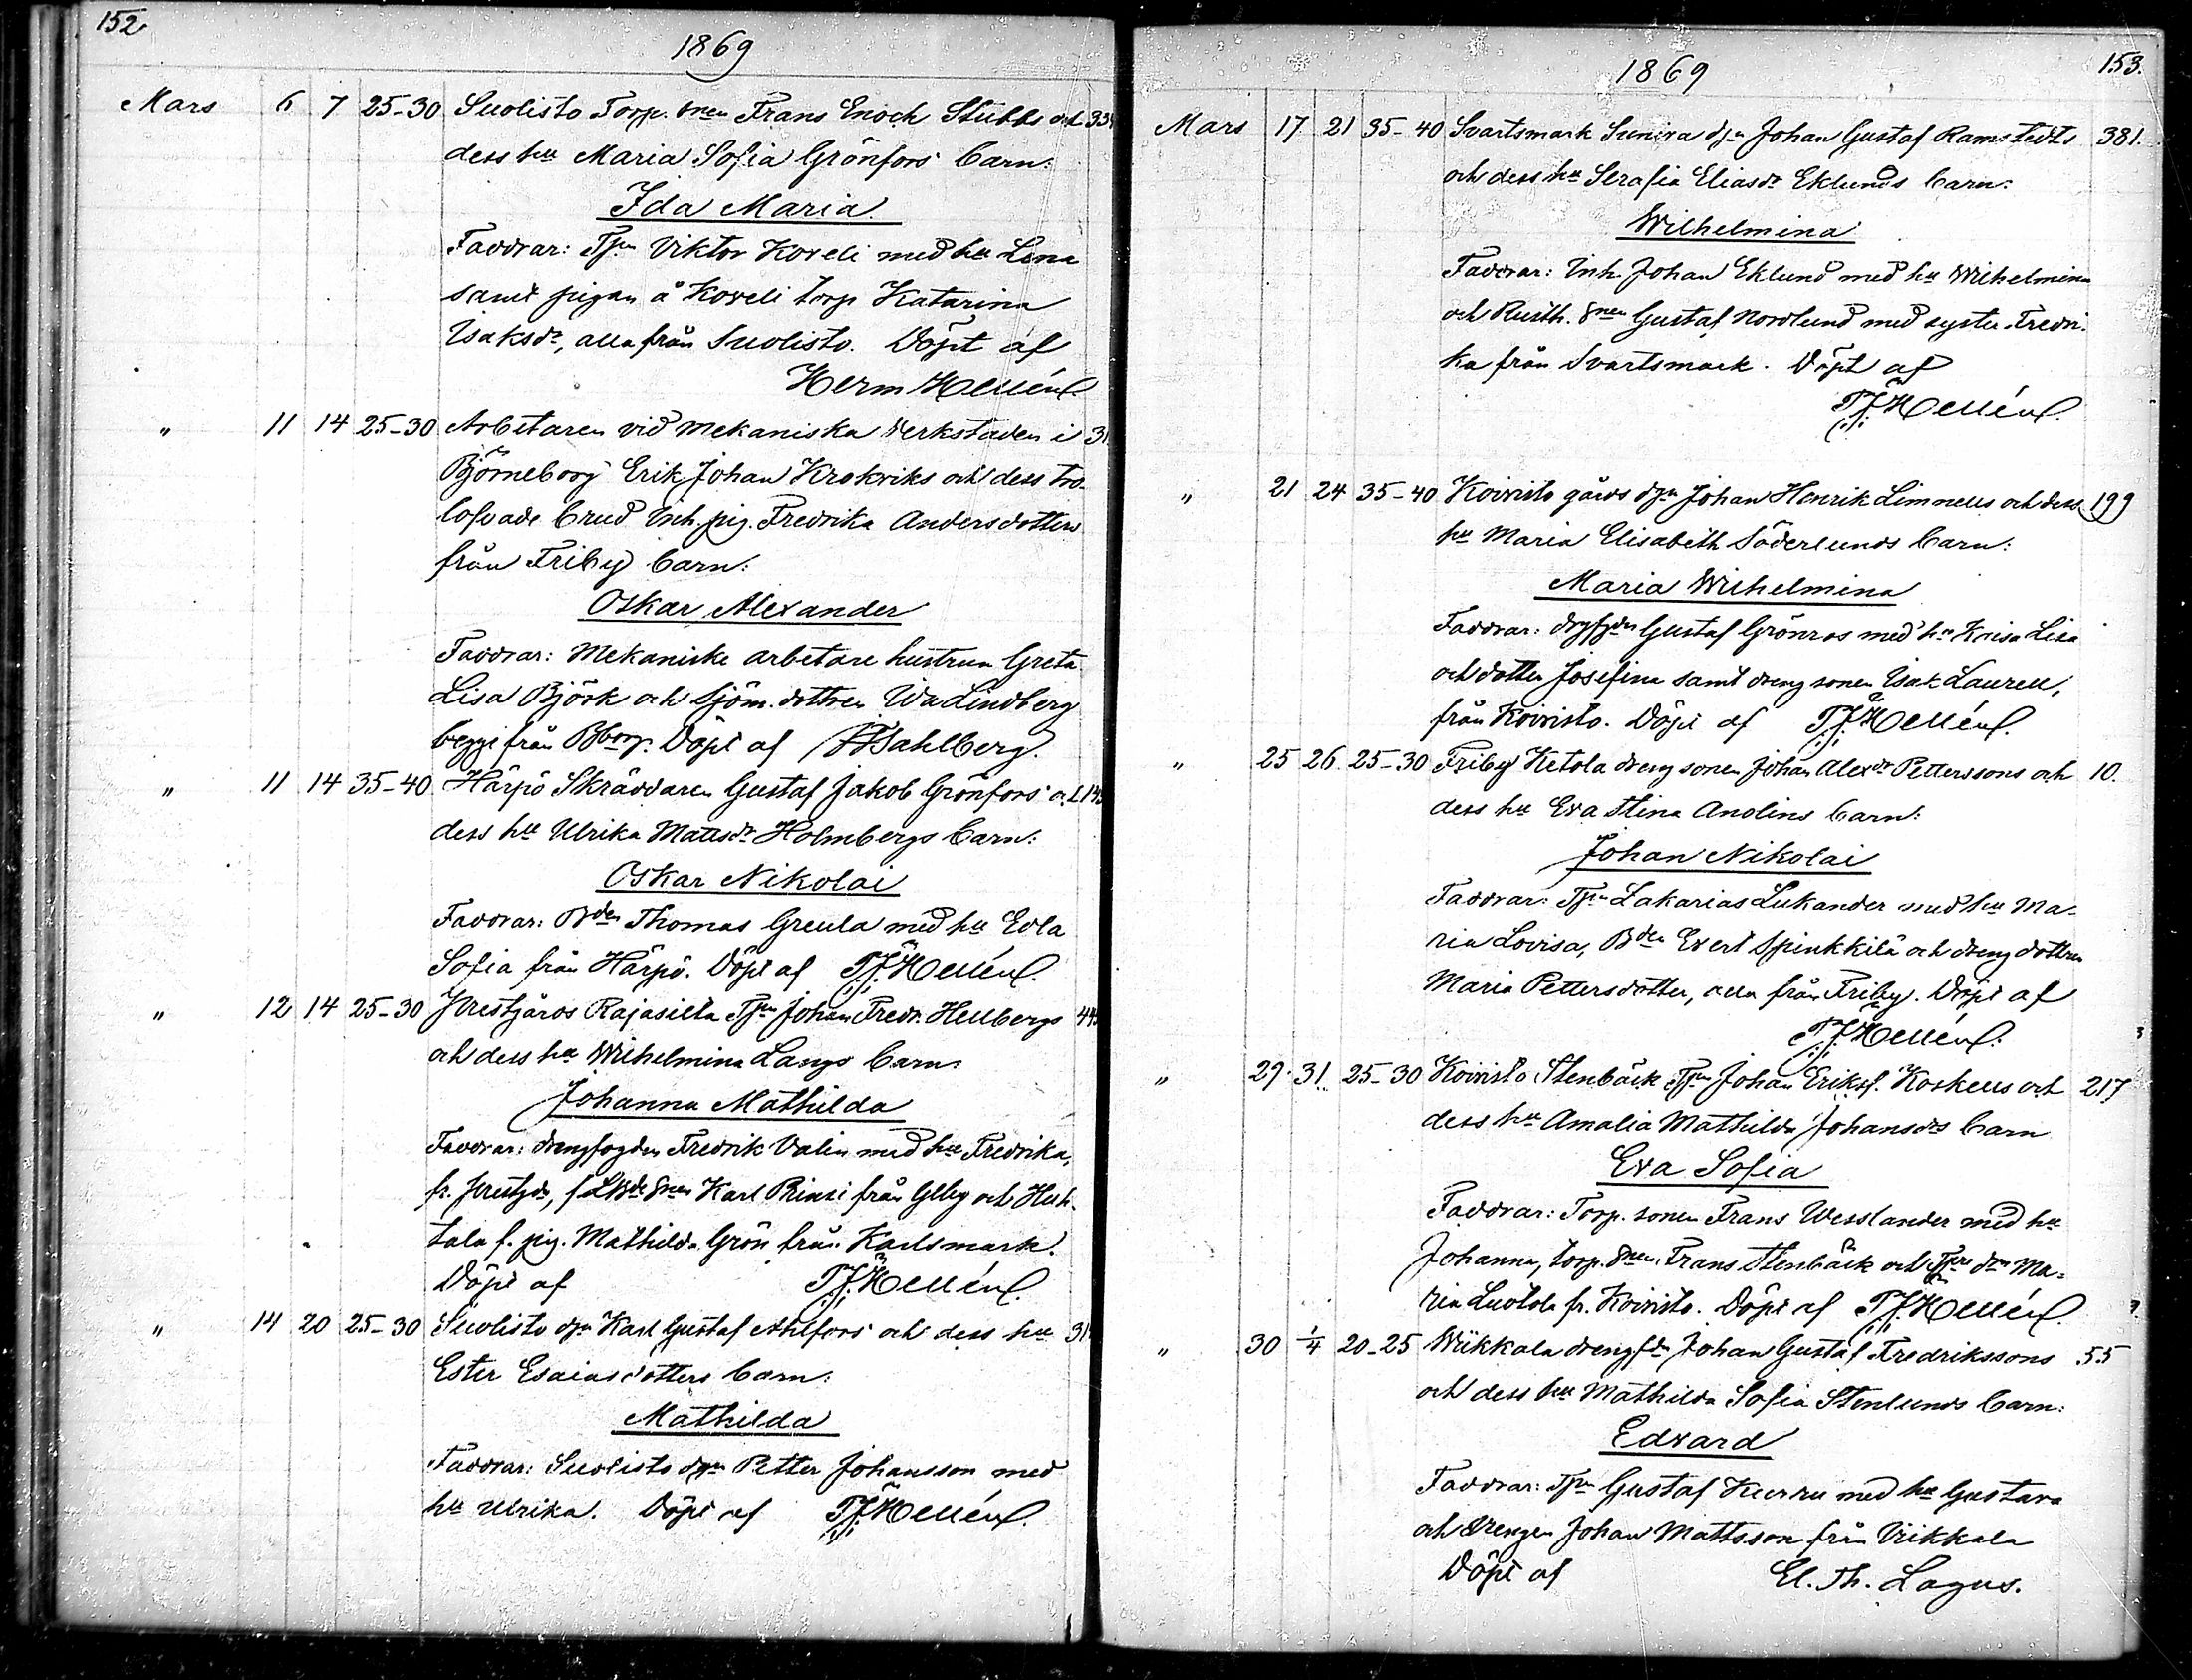 152
1869
Mars 6 7 25-30 Suolisto Torp. snen Frans Enoch Stubbs och
dess hu Maria Sofia Grönfors barn:
Ida Maria
Faddrar: Tjn Viktor Koveli med hu Lena
samt pigan å Koveli torp Katarina
Isaksdr, alla från Suolisto. Döpt af
Herm Hellén
" 11 14 25-30 Arbetaren vid Mekaniska Verkstaden i
Björneborg Erik Johan Krokviks och dess tro-
lofvade brud Inh. pig. Fredrika Andersdotters
från Friby barn:
Oskar Alexander
Faddrar: Mekaniske arbetare hustrun Greta
Lisa Björk och Sjöm. dottren Ida Lindberg
begge från Bborg. Döpt af Dahlberg.
" 11 14 35-40 Härpö Skräddaren Gustaf Jakob Grönfors o.
dess hu Ulrika Mattsdr Holmbergs barn:
Oskar Nikolai
Faddrar: Bden Thomas Greula med hu Edla
Sofia från Härpö. Döpt af T.J. Hellén.
" 12 14 25-30 Rajasilta Tjn Johan Fredr. Hellbergs
och dess hu Wilhelmina Langs barn:
Johanna Mathilda
Faddrar: drengfogden Fredrik Valin med hu Fredrika,
fr. snen Karl Prinsi från Gllby och Huh-
tala f. pig. Mathilda Grön från Karlsmark.
Döpt af T.J. Hellén.
" 14 20 25-30 Suolisto dgn Karl Gustaf Ahlfors och dess hu
Ester Esaiasdotters barn:
Mathilda
Faddrar: Suolisto dgn Petter Johansson med
hu Ulrika. Döpt af T.J. Hellén.
153.
1869
Mars 17 21 35-40 Svartsmark Sunira dgn Johan Gustaf Ramstedts 381.
och dess hu Serafia Eliasdr Eklunds barn:
Wilhelmina
Faddrar: Inh. Johan Eklund med hu Wilhelmina
och Rusth. snen Gustaf Nordlund med syster Fredri-
ka från Svartsmark. Döpt af
T.J. Hellén.
" 21 24 35-40 Koivisto gårds dgn Johan Henrik Limnells och dess 199
hu Maria Elisabeth Söderlunds barn:
Maria Wilhelmina
Faddrar: Gustaf Grönros med hu Kaisa Lisa
och dotter Josefina samt drengsonen Isak Laurell,
från Koivisto. Döpt af T.J. Hellén.
" 25 26 25-30 Friby Ketola drengsonen Johan Alexdr Petterssons och 10.
dess hu Eva Stina Anolins barn:
Johan Nikolai
Faddrar: Tjn Zakarias Lukander med hu Ma-
ria Lovisa, Bden Evert Spinkkilä och dreng dottren
Maria Pettersdotter, alla från Friby. Döpt af
T.J. Hellén.
" 29 31 25-30 Koivisto Stenbäck Tjn Johan Eriks. Koskells och 217
dess hu Amalia Mathilda Johansdrs barn
Eva Sofia
Faddrar: Torp. sonen Frans Wesslander med hu
Johanna, torp. snen Frans Stenbäck och Tjn dtn Ma-
ria Luotola fr. Koivisto. Döpt af T.J. Hellén.
" 30 1/4 20-25 Wiikkala drengfdn Johan Gustaf Fredrikssons 55
och dess hu Mathilda Sofia Stenlunds barn:
Edvard
Faddrar: Tjn Gustaf Kurru med hu Gustava
och drengen Johan Mattsson från Viikkala
Döpt af El. Th. Lagus.